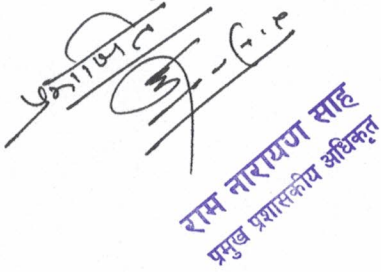 प्रमाणित
राम नारायण साह
प्रमुख प्रशासकीय अधिकृत